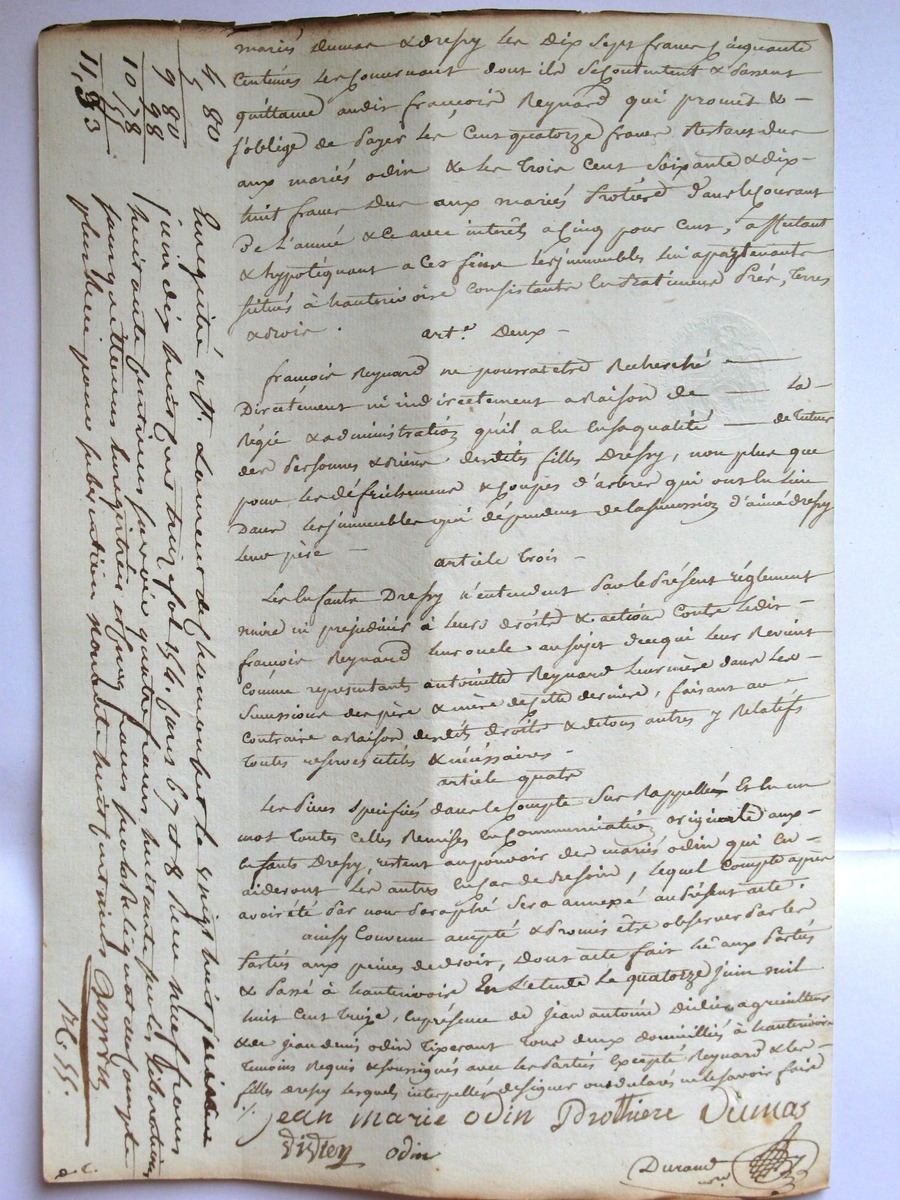 mariés Dumas & dressy les dix sept francs cinquante
centimes les concernant dont ils se contentent & passent
quittance audit françois Reynard qui promet &
s'oblige de payer les cent quatorze francs restant dus
aux mariés odin & les trois cent soixante & dix-
huit francs dus aux mariés Protière dans le courant
de l'année & ce avec intérêts a cinq pour cent, affectant
& hypotéquant a ces fins les immeubles lui apartenants
situés à hauterivoire consistants en Batiments Prés, terres
& droits.
art.e Deux -
françois Reynard ne pourra être Recherché
Directement ni indirectement a raison de la
Régie & administration qu'il a eu en sa qualité de tuteur
des personnes & biens desdites filles Dressy, non plus que
pour les défrichements & coupes d'arbres qui ont eu lieu
dans les immeubles qui dépendent de la succession d'aimé dressy
leur père -
article trois -
Les enfants Dressy n'entendent par le présent réglement
nuire ni préjudicier à leurs droits & action contre ledit
françois Reynard leur oncle au sujet de ce qui leur Revient
comme représentants antoinette Reynard leur mère dans les
successions des père & mère de cette dernière, faisant au
contraire a raison desdits droits & de tous autres y relatifs
toutes reserves utiles & nécessaires -
article quatre
Les pièces spécifiées dans le compte sus rappellé & en un
mot toutes celles remises en communication originale aux
enfants dressy, restent au pouvoir des mariés odin qui en
aideront les autres en cas de besoin, lequel compte après
avoir été par nous paraphé sera annexé au présent acte.
ainsy convenu accepté & promis être observer par les
parties aux peines de droit, dont acte fait lû aux parties
& passé à hauterivoire en l'etude le quatorze juin mil
huit cent treize, en présence de jean antoine didier agriculteur
& de jean denis odin tixerant tous deux domiciliés à hauterivoire
témoins requis & soussignés avec les parties excepté Reynard & les
filles dressy lesquels interpellés de signer ont déclaré ne le savoir faire
jean marie odin Prothiere Dumas
Didier odin
Durand
4 80
5
9 80
98
10 78
11, 93
Enregistré à St. Laurent de chamousset le vingt huit
juin dix huit cent treize fol. 154. cases 6 7 et 8 neuf francs
huitante centimes savoir quatre francs huitante pour les
pour quittances enregistrées et cinq francs pour
plus
M 55.